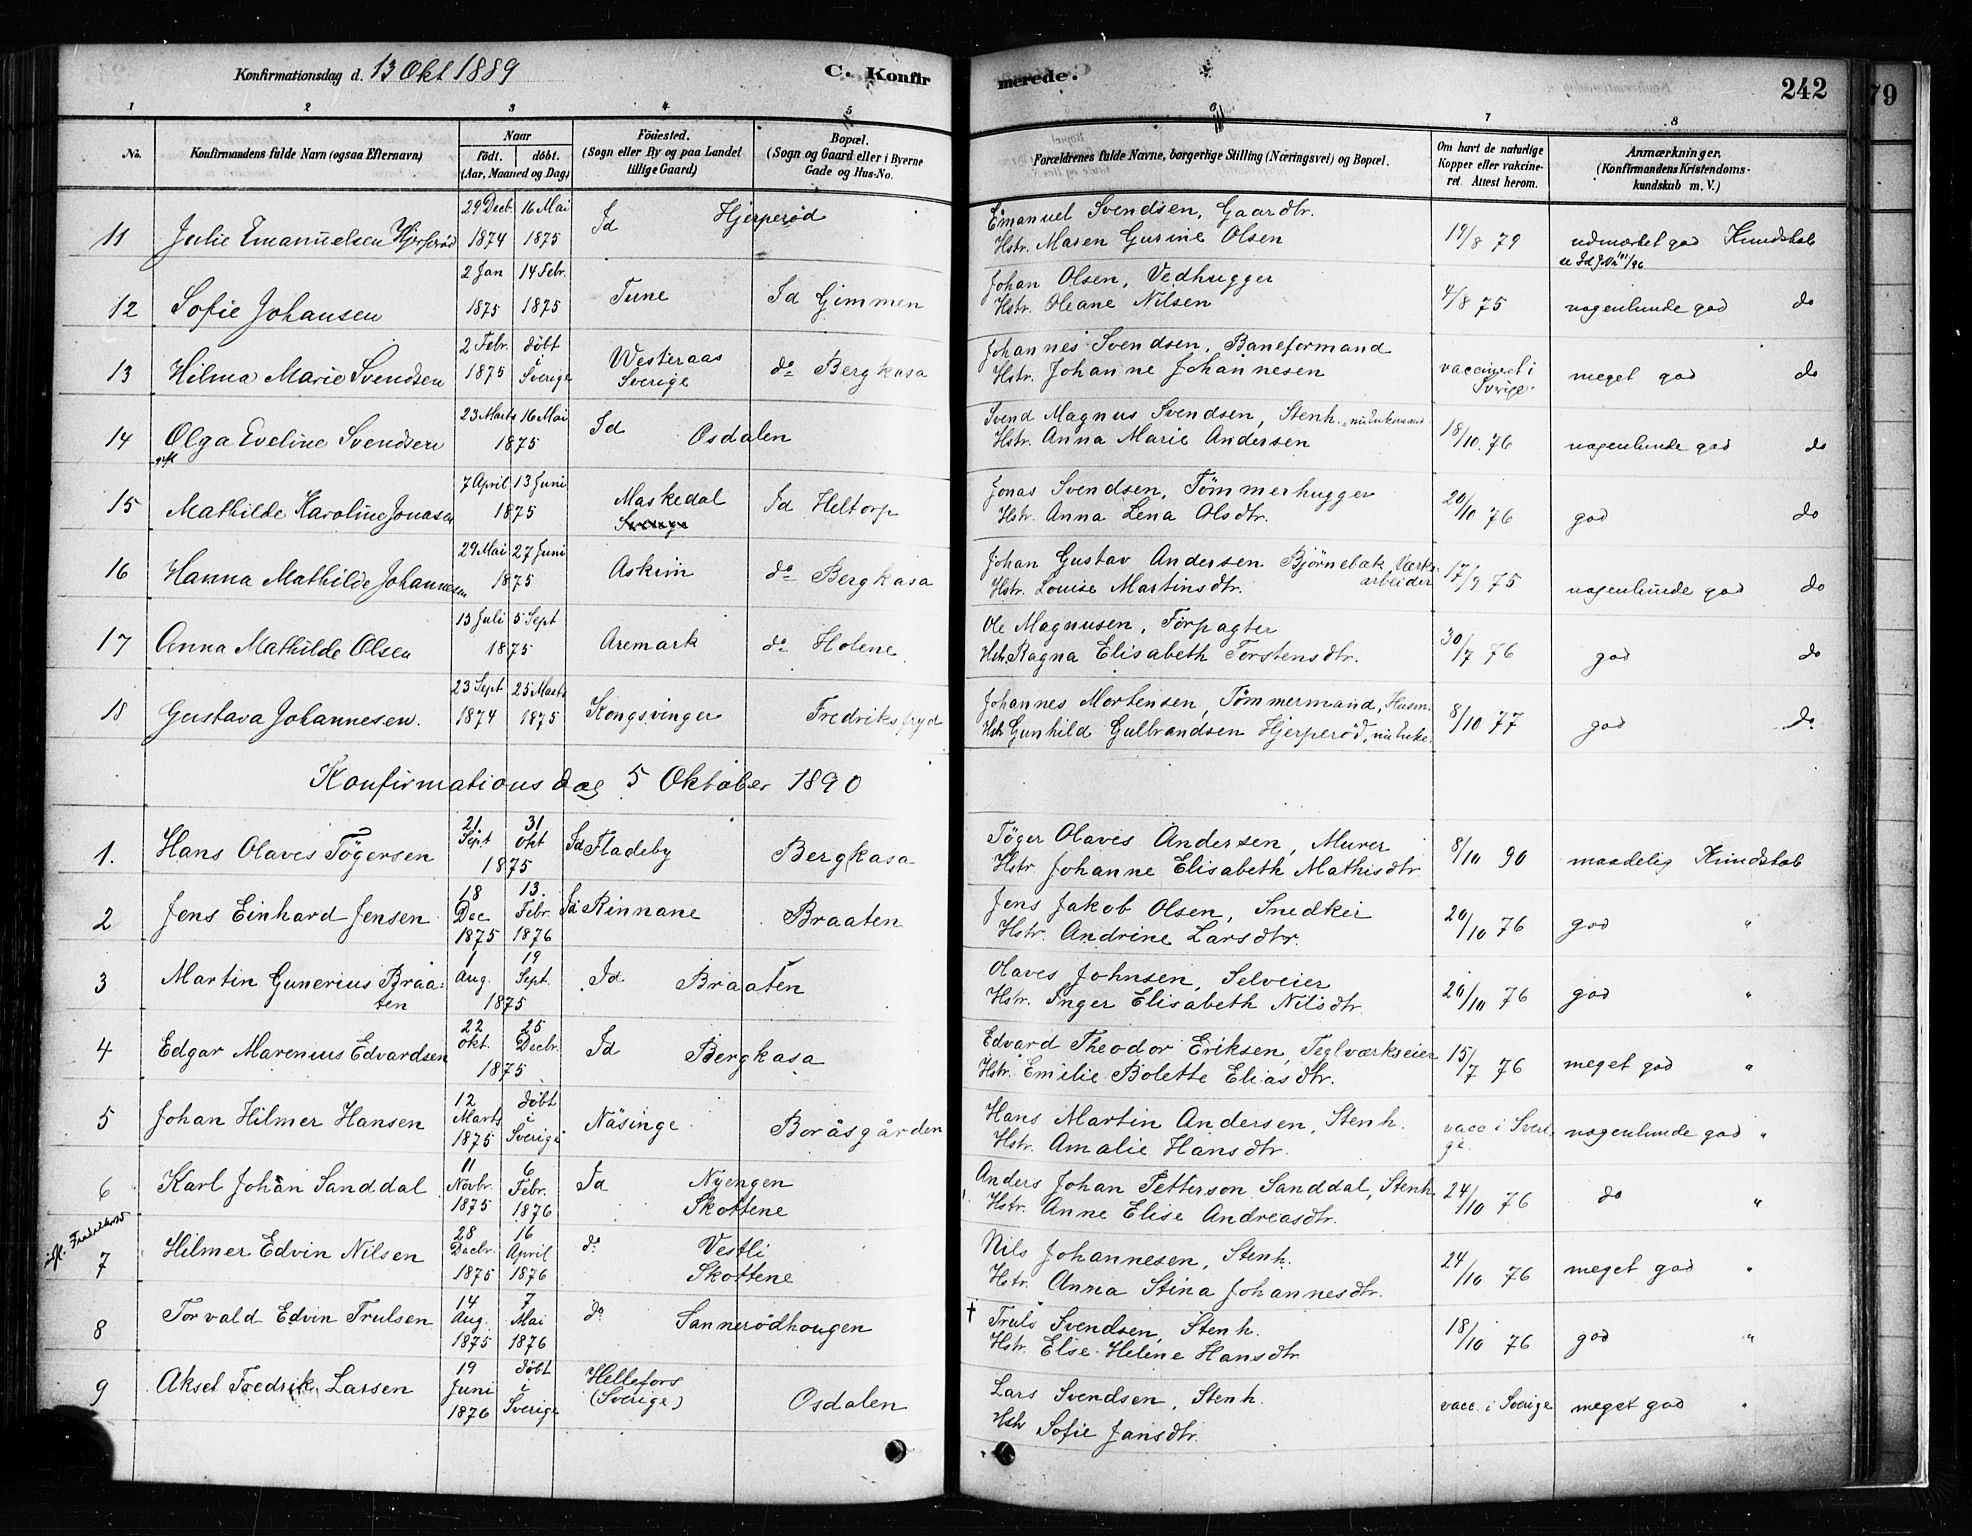 Konfirmationsdag d. 13 Okt 1889 C. Konfirmerede. 242
79
1 2 3 4 5 6 7 8
No. Konfirmandens fulde Navn (ogsaa Efternavn) Naar født. døbt. (Aar, Maaned og Dag) Fødested. (Sogn eller By og paa Landet tillige Gaard) Bopæl. (Sogn og Gaard eller i Byerne Gade og Hus-No. Forældrenes fulde Navne, borgerlige Stilling (Næringsvei) og Bopæl. Om havt de naturlige Kopper eller vakcineret. Attest herom. Anmærkninger. (Konfirmandens Kristendomskundskab m. V.)
11 Julie Emanuelsen Hjerperød 29 Decbr 1874 16 Mai 1875 Id Hjerperød Emanuel Svendsen, Gaardbr. Hstr. Maren Gurine Olsen 19/8 79 udmærket god Kundskab
12 Sofie Johansen 2 Jan 1875 14 Febr. 1875 Tune Id Gimmen Johan Olsen, Vedhugger Hstr. Oleane Nilsen 4/8 75 nogenlunde god do
13 Hilma Marie Svendsen 2 Febr. 1875 døbt i Sverige Westeraas Sverige do Bergkasa Johannes Svendsen, Baneformand Hstr. Johanne Johannesen vaccineret i Sverige meget god do
14 Olga Eveline Svendsen 23 Marts 16 Mai 1875 Id Osdalen Svend Magnus Svendsen, Stenh. Hstr. Anna Marie Andersen 18/10 76 nogenlunde god do
15 Mathilde Karoline Jonasen 7 April 13 Juni 1875 Maskedal Sverige Id Heltorp Jonas Svendsen, Tømmerhugger Hstr. Anna Lena Olsdtr. 20/10 76 god do
16 Hanna Mathilde Johannesen 29 Mai 27 Juni 1875 Askim do Bergkasa Johan Gustav Andersen Bjørnebak Værksarbeider Hstr. Louise Martinsdtr. 17/9 75 nogenlunde god do
17 Anna Mathilde Olsen 15 Juli 5 Sept 1875 Aremark do Holene Ole Magnusen, Forpagter Hstr. Ragna Elisabeth Torstensdtr. 30/7 76 god do
18 Gustava Johannesen. 23 Sept 1874 25 Marts 1875 Kongsvinger Fredriksfryd Johannes Mortensen, Tømmermand, Husm. Hstr Gunhild Gulbrandsen Hjerperød, 8/10 77 god do
Konfirmationsdag 5 Oktober 1890
1. Hans Olaves Tøgersen 21 Sept 31 Okt 1875 Id Fladeby Bergkasa Tøger Olaves Andersen, Murer Hstr Johanne Elisabeth Mathisdtr 8/10 90 maadelig Kundskab
2 Jens Einhard Jensen 18 Dec 1875 13. Febr. 1876 Id Rinnane Braaten Jens Jakob Olsen, Snedker Hstr. Andrine Larsdtr. 20/10 76 god "
3 Martin Gunerius Braaten 1 Aug. 19 Sept. 1875 Id Braaten Olaves Johnsen, Selveier Hstr. Inger Elisabeth Nilsdtr. 20/10 76 god "
4 Edgar Marenius Edvardsen 22 Okt. 25 Decbr. 1875 Id Bergkasa Edvard Theodor Eriksen, Teglværkseier Hstr. Emilie Bolette Eliasdtr. 15/7 76 meget god "
5 Johan Hilmer Hansen 12 Marts 1875 døbt i Sverige Näsinge Boråsgården Hans Martin Andersen, Stenh. Hstr. Amalie Hansdtr. vacc i Sverige nogenlunde god "
6 Karl Johan Sanddal 11 Novbr. 1875 6 Febr. 1876 Id Nyengen Skottene Anders Johan Petterson Sanddal, Stenh. Hstr. Anne Elise Andreasdtr. 24/10 76 do "
7 Hilmer Edvin Nilsen 28 Decbr. 1875 16 April 1876 do Vestli Skottene Nils Johannesen, Stenh. Hstr. Anna Stina Johannesdtr. 24/10 76 meget god "
8 Torvald Edvin Trulsen 14 Aug. 1875 7 Mai 1876 do Sannerødhougen † Truls Svendsen, Stenh. Hstr. Else Helene Hansdtr 18/10 76 god "
9 Aksel Fredrik Larsen 19 Juni 1876 døbt i Sverige Hellefors (Sverige) Osdalen Lars Svendsen, Stenh. Hstr Sofie Jansdtr. vacc. i Sverige meget god "